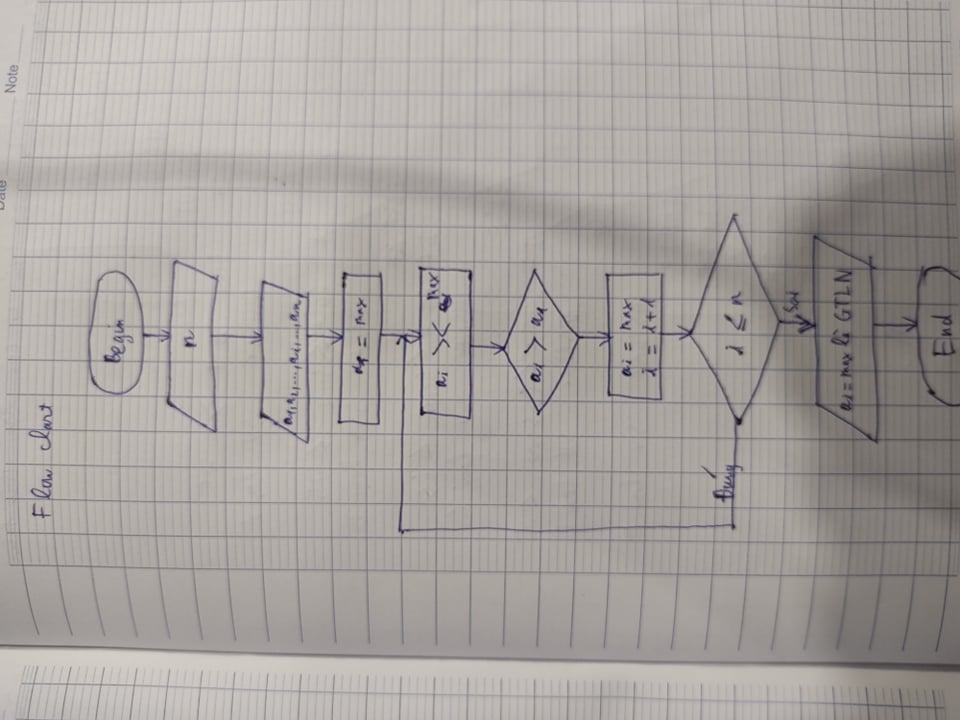 Date
Note
Flow chart
Begin
n
a₁, a₂, ..., aᵢ, ..., aₙ
a₁ = max
aᵢ >< max
> 
aᵢ = max
i = i+1
i ≤ n
Đúng
Sai
aᵢ = max là GTLN
End